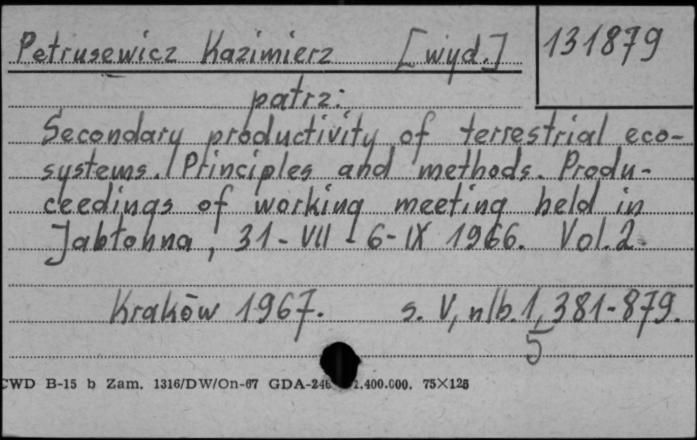 Petrusewicz Kazimierz [wyd.] 131879
patrz:
Secondary productivity of terrestrial eco-
systems. Principles and methods. Produ-
ceedings of working meeting held in
Jabłonna, 31-VII - 6-IX 1966. Vol. 2.
Kraków 1967. s. V, nlb. 1, 381-879.
5
CWD B-15 b Zam. 1316/DW/On-67 GDA-246 2.400.000. 75×125